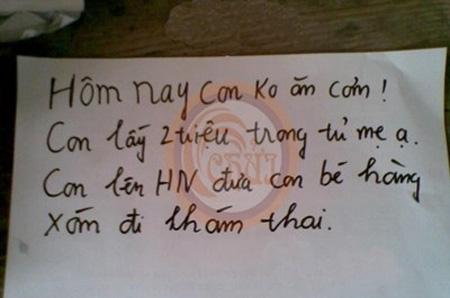 Hôm nay con ko ăn cơm!
Con lấy 2 triệu trong tủ mẹ ạ.
Con lên HN đưa con bé hàng
xóm đi khám thai.